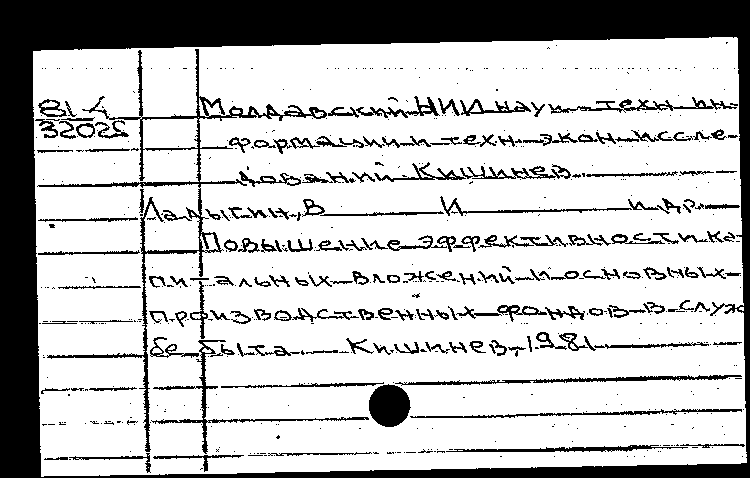 81-4
32025
Молдавский НИИ науч.-техн. ин-
формации и техн.-экон. иссле-
дований. Кишинев
Ладыгин, В И и др.
Повышение эффективности ка-
питальных вложений и основных
производственных фондов в служ
бе быта. Кишинев, 1981